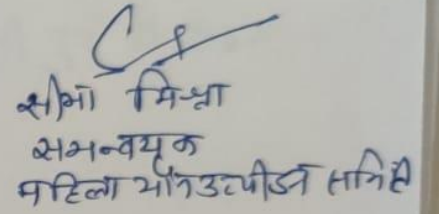 सीमा मिश्रा
समन्वयक
महिला यौन उत्पीडन समिति